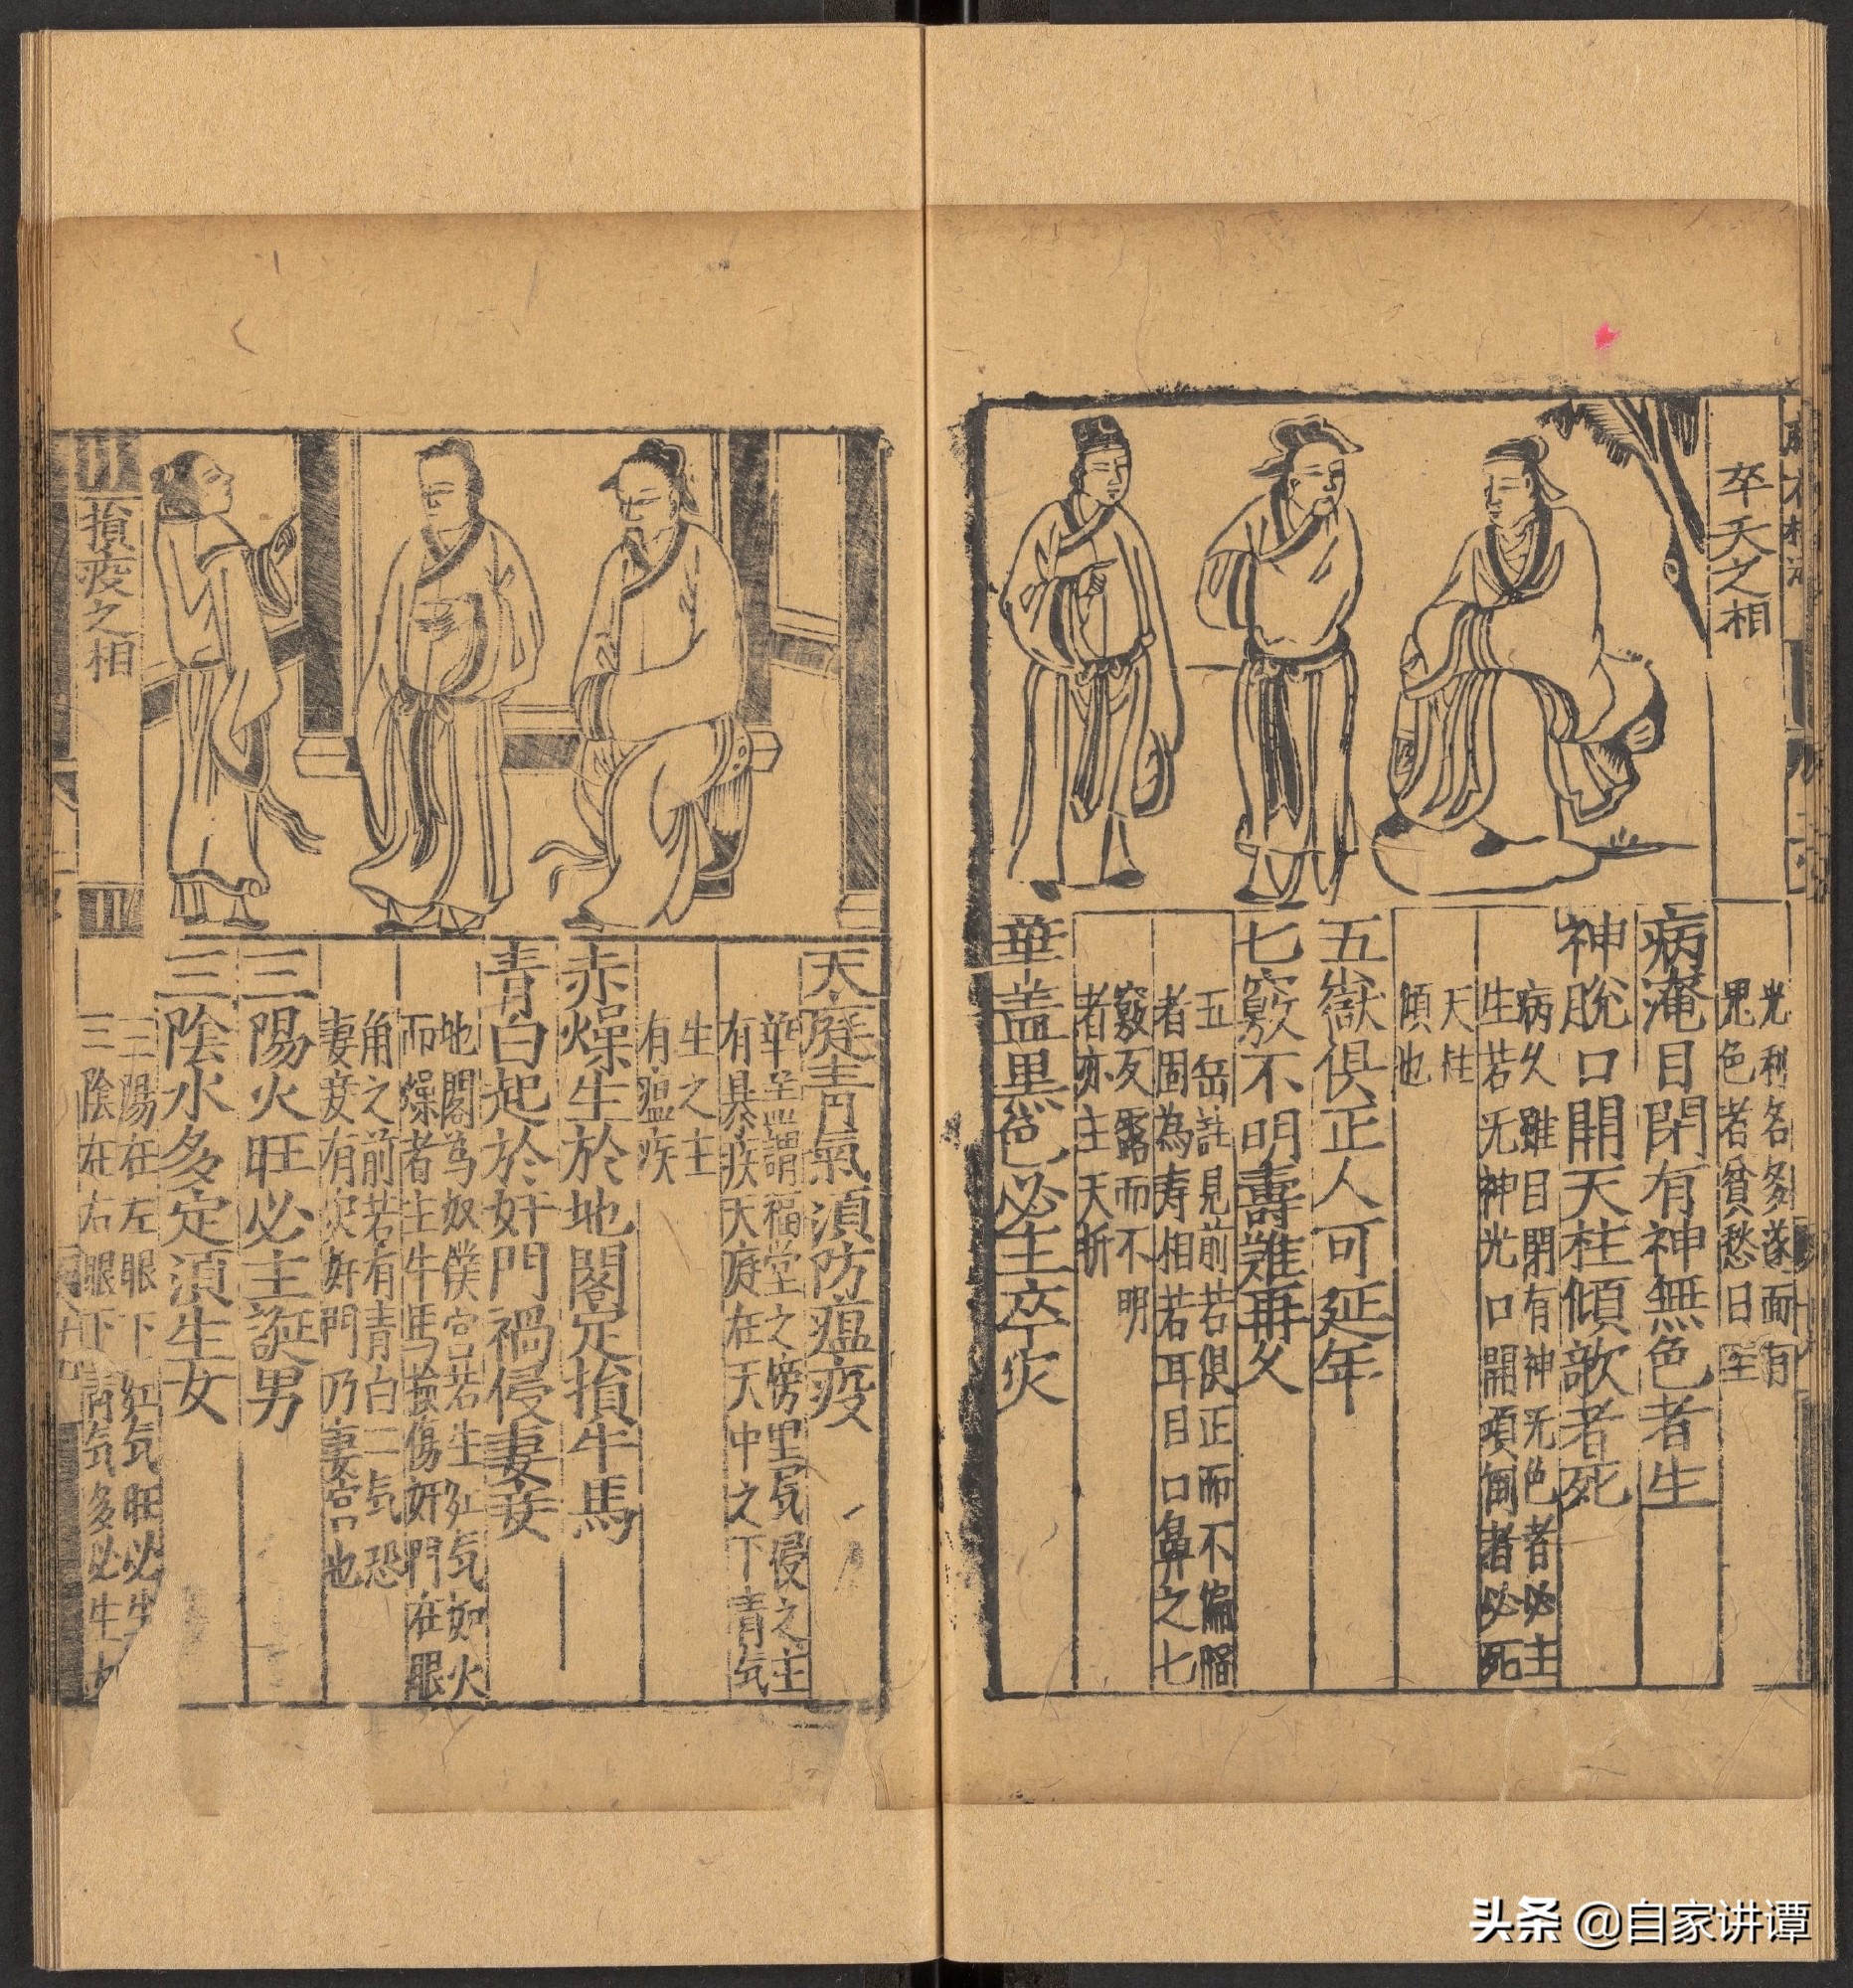 卒夭之相
光利名多遂面有
黑色者貧愁日至
病淹目閉有神無色者生
神脫口開天柱傾欹者死
病久雖目閉有神旡色者必主
生若旡神光口開項倒者必死
天柱
傾也
五嶽俱正人可延年
七竅不明壽難再久
五岳註見前若俱正而不偏陷
者固為寿相若耳目口鼻之七
竅反露而不明
者亦主夭折
華盖黒色必主卒灾
天庭青氣須防瘟疫
華盖謂福堂之傍黑気侵之主
有暴疾天庭在天中之下青気
生之主
有瘟疾
赤燥生於地閣定損牛馬
青白起於奸門禍侵妻妾
地閣為奴僕宮若生紅気如火
而燥者主牛馬損傷奸門在眼
角之前若有青白二気恐
妻妾有灾奸門乃妻宮也
三陽火旺必主誕男
三陰水多定須生女
三陽在左眼下紅気旺必生
三陰在右眼下青気多必生
損疫之相
头条 @自家讲谭